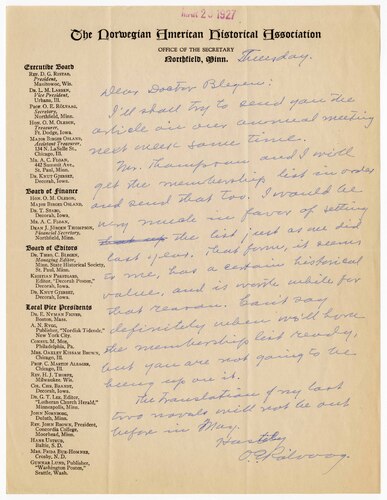 MAR 25 1927
The Norwegian American Historical Association
OFFICE OF THE SECRETARY
Northfield, Minn.
Executive Board
REV. D. G. RISTAD,
President,
Manitowoc, Wis.
DR. L. M. LARSEN,
Vice President,
Urbana, Ill.
PROF. O. E. RÖLVAAG,
Secretary,
Northfield, Minn.
HON. O. M. OLESON,
Treasurer,
Ft. Dodge, Iowa.
MAJOR BIRGER OSLAND,
Assistant Treasurer,
134 N. LaSalle St.,
Chicago, Ill.
MR. A. C. FLOAN,
442 Summit Ave.,
St. Paul, Minn.
DR. KNUT GJERSET,
Decorah, Iowa.
Board of Finance
HON. O. M. OLESON,
MAJOR BIRGER OSLAND,
DR. T. STABO,
Decorah, Iowa.
MR. A. C. FLOAN,
DEAN J. JÖRGEN THOMPSON,
Financial Secretary,
Northfield, Minn.
Board of Editors
DR. THEO. C. BLEGEN,
Managing Editor,
Minn. State Historical Society,
St. Paul, Minn.
KRISTIAN PRESTGARD,
Editor, "Decorah Posten",
Decorah, Iowa.
DR. KNUT GJERSET,
Decorah, Iowa.
Local Vice Presidents
DR. E. NYMAN FIGVED,
Boston, Mass.
A. N. RYGG,
Publisher, "Nordisk Tidende,"
New York City.
CONSUL M. MOE,
Philadelphia, Pa.
MRS. OAKLEY KINSAM BROWN,
Chicago, Ill.
PROF. C. MARTIN ALSAGER,
Chicago, Ill.
REV. H. J. THORPE,
Milwaukee, Wis.
COL. CHR. BRANDT,
Decorah, Iowa.
DR. G. T. LEE, Editor,
"Lutheran Church Herald,"
Minneapolis, Minn.
JOHN NORDBYE,
Duluth, Minn.
REV. J. N. BROWN, President,
Concordia College,
Moorhead, Minn.
HANS USTRUD,
Baltic, S. D.
MRS. FRIDA BUE-HOMNES,
Crosby, N. D.
GUNNAR LUND, Publisher,
"Washington Posten",
Seattle, Wash.
Thursday.
Dear Doctor Blegen:
I'll shall try to send you the
article on our annual meeting
next week some time.
Mr. Thompson and I will
get the membership list in order
and send that too. I would be
very much in favor of setting
the list just as we did
last year. That form, it seems
to me, has a certain historical
value, and is worth while for
that reason. Can't say
definitely when we'll have
the membership list ready,
but you are not going to be
hung up on it.
The translation of my last
two novels will not be out
before in May.
Hastily
O. E. Rölvaag